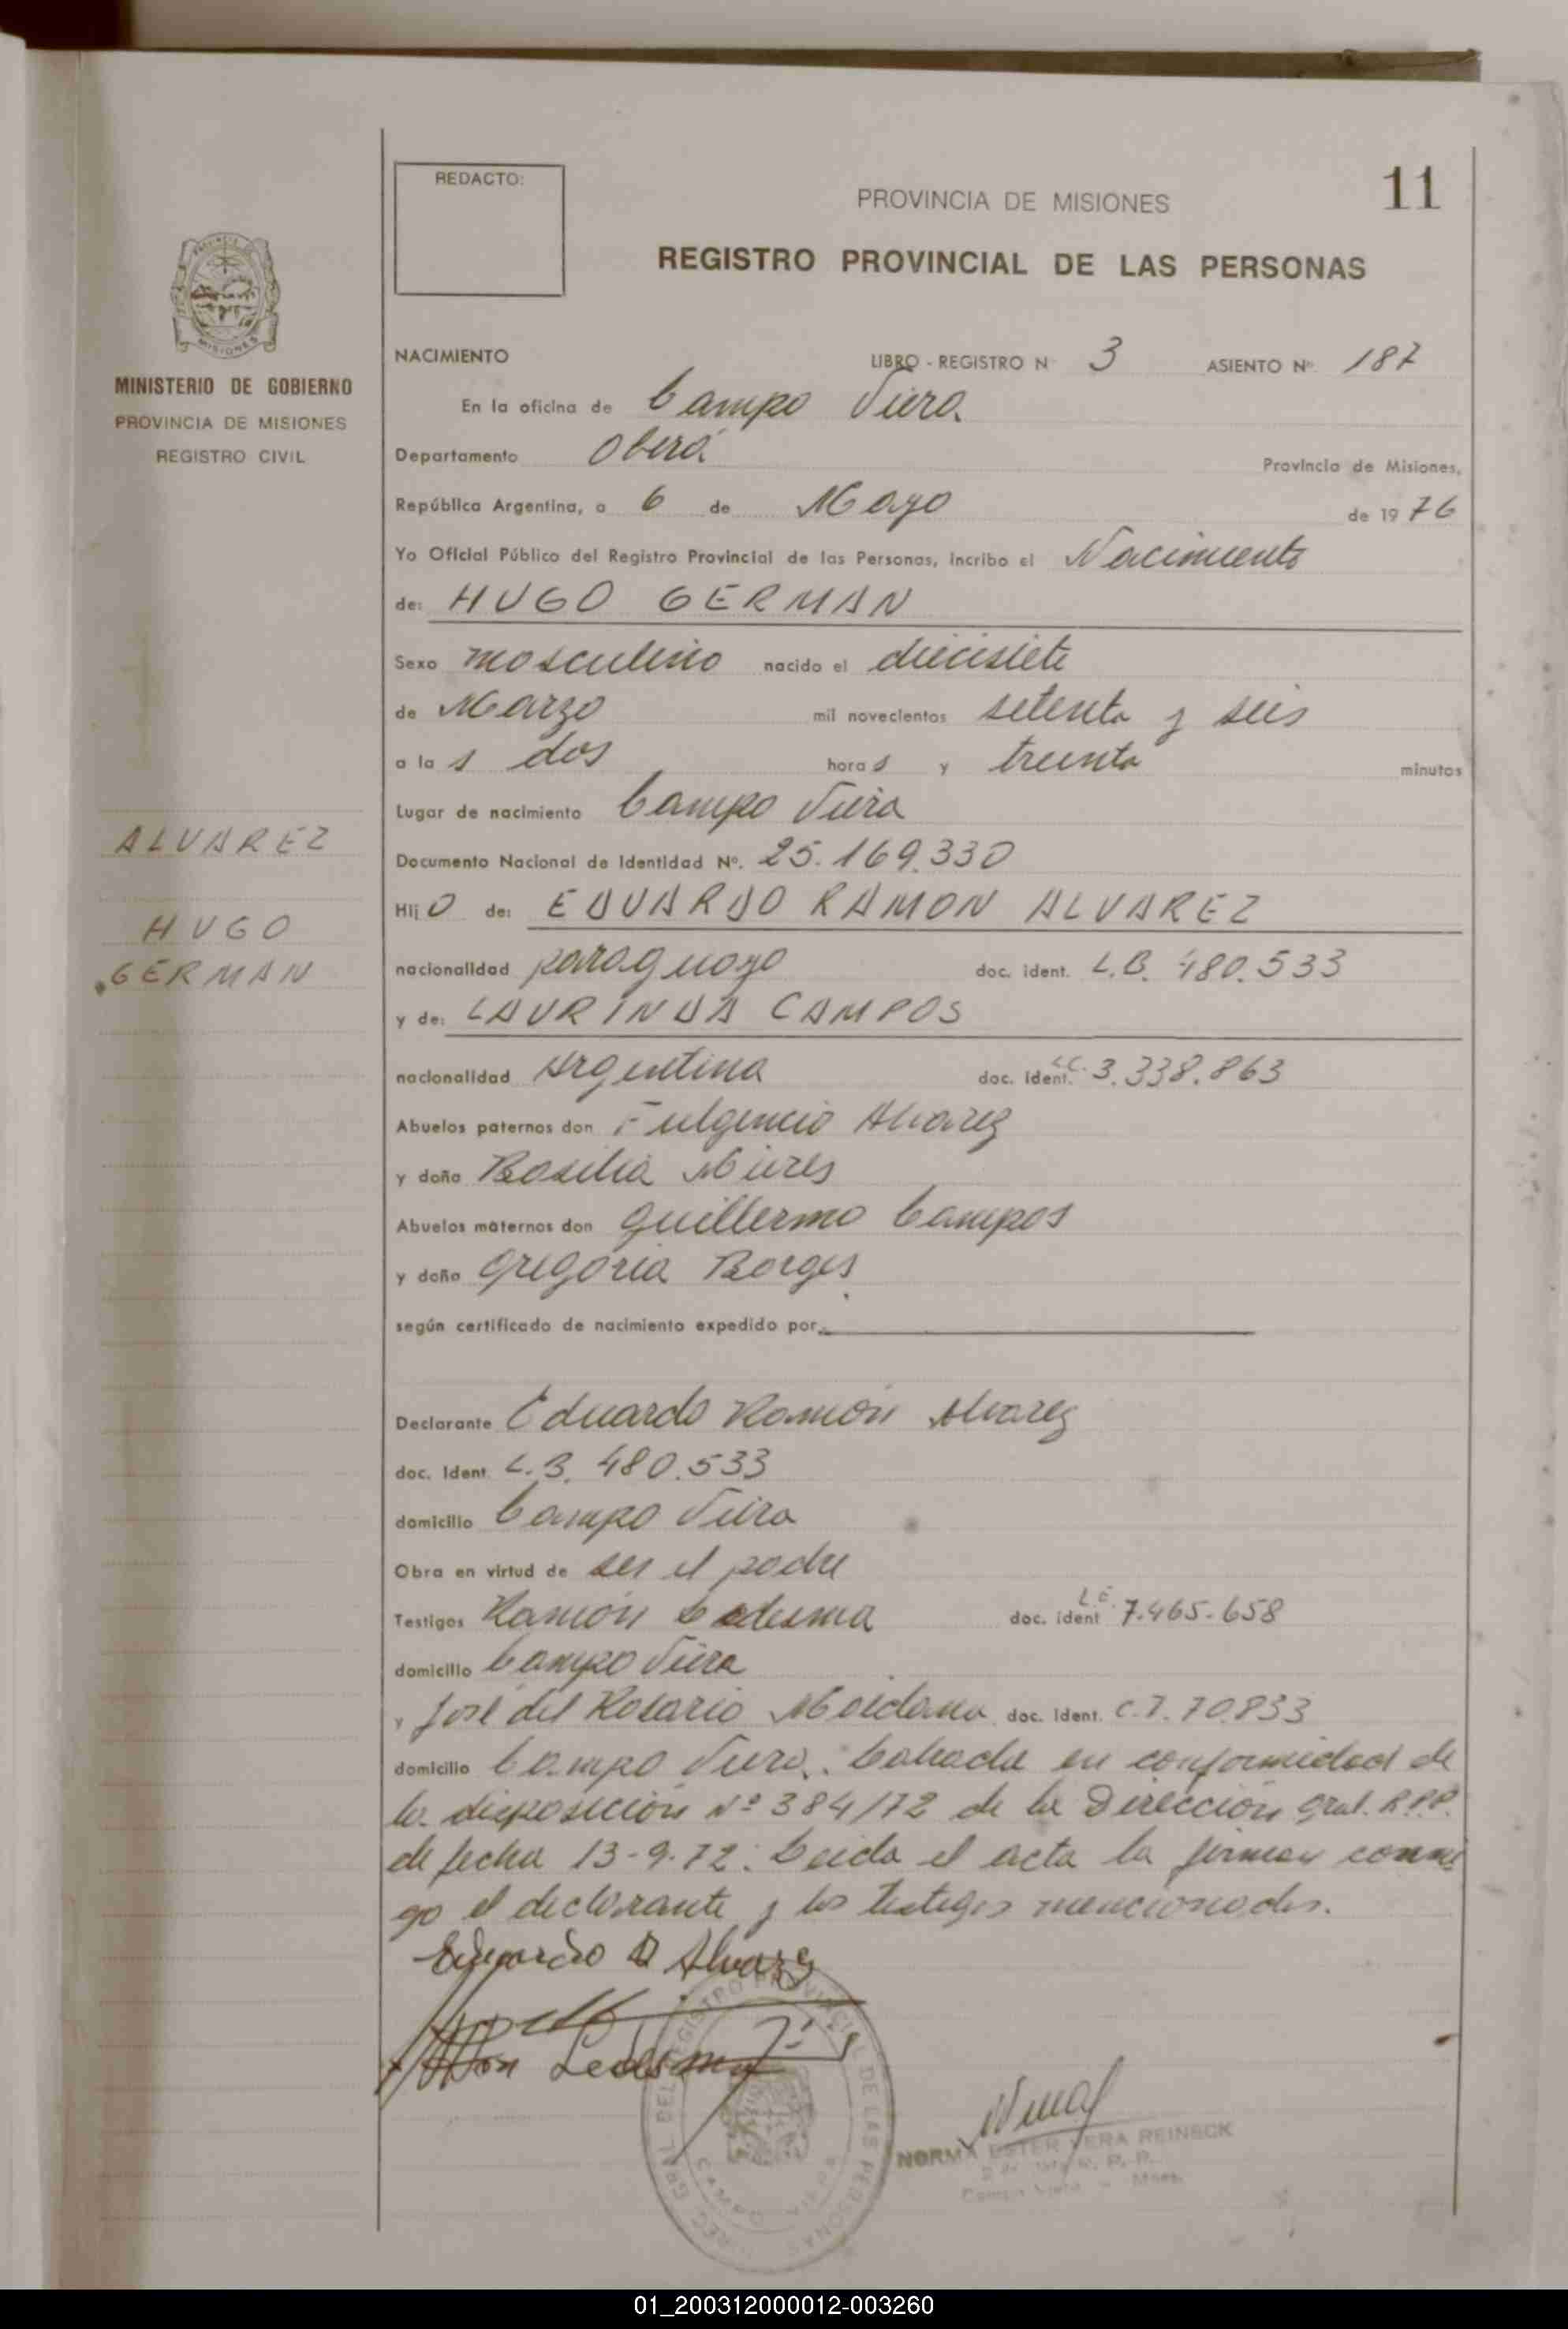 REDACTO:
PROVINCIA DE MISIONES
11
REGISTRO PROVINCIAL DE LAS PERSONAS
MISIONES
MINISTERIO DE GOBIERNO
PROVINCIA DE MISIONES
REGISTRO CIVIL
NACIMIENTO LIBRO - REGISTRO N° 3 ASIENTO N° 187
En la oficina de Campo Viera
Departamento Oberá Provincia de Misiones,
República Argentina, a 6 de Mayo de 1976
Yo Oficial Público del Registro Provincial de las Personas, incribo el Nacimiento
de: HUGO GERMAN
Sexo masculino nacido el diecisiete
de Marzo mil novecientos setenta y seis
a las dos horas y treinta minutos
Lugar de nacimiento Campo Viera
ALVAREZ
HUGO
GERMAN
Documento Nacional de Identidad N°. 25.169.330
Hijo de: EDUARDO RAMON ALVAREZ
nacionalidad paraguayo doc. ident. L.B. 480.533
y de: LAURINDA CAMPOS
nacionalidad Argentina doc. ident. L.C. 3.338.863
Abuelos paternos don Fulgencio Alvarez
y doña Basilia
Abuelos maternos don Guillermo Campos
y doña Gregoria Borges
según certificado de nacimiento expedido por
Declarante Eduardo Ramón Alvarez
doc. ident. L.B. 480.533
domicilio Campo Viera
Obra en virtud de ser el padre
Testigos Ramón Ledesma doc. ident. L.E. 7.465.658
domicilio Campo Viera
y José del Rosario Maidana doc. ident. C.I. 70.833
domicilio Campo Viera. en conformidad de
la disposición N° 384/72 de la Dirección Gral. R.P.P.
de fecha 13-9-72. Leida el acta la firman conmi
go el declarante y los testigos mencionados.
Eduardo R Alvarez
Ramon Ledesma
REG. GRAL. DEL REGISTRO PROVINCIAL DE LAS PERSONAS
CAMPO VIERA
NORMA ESTER VERA REINECK